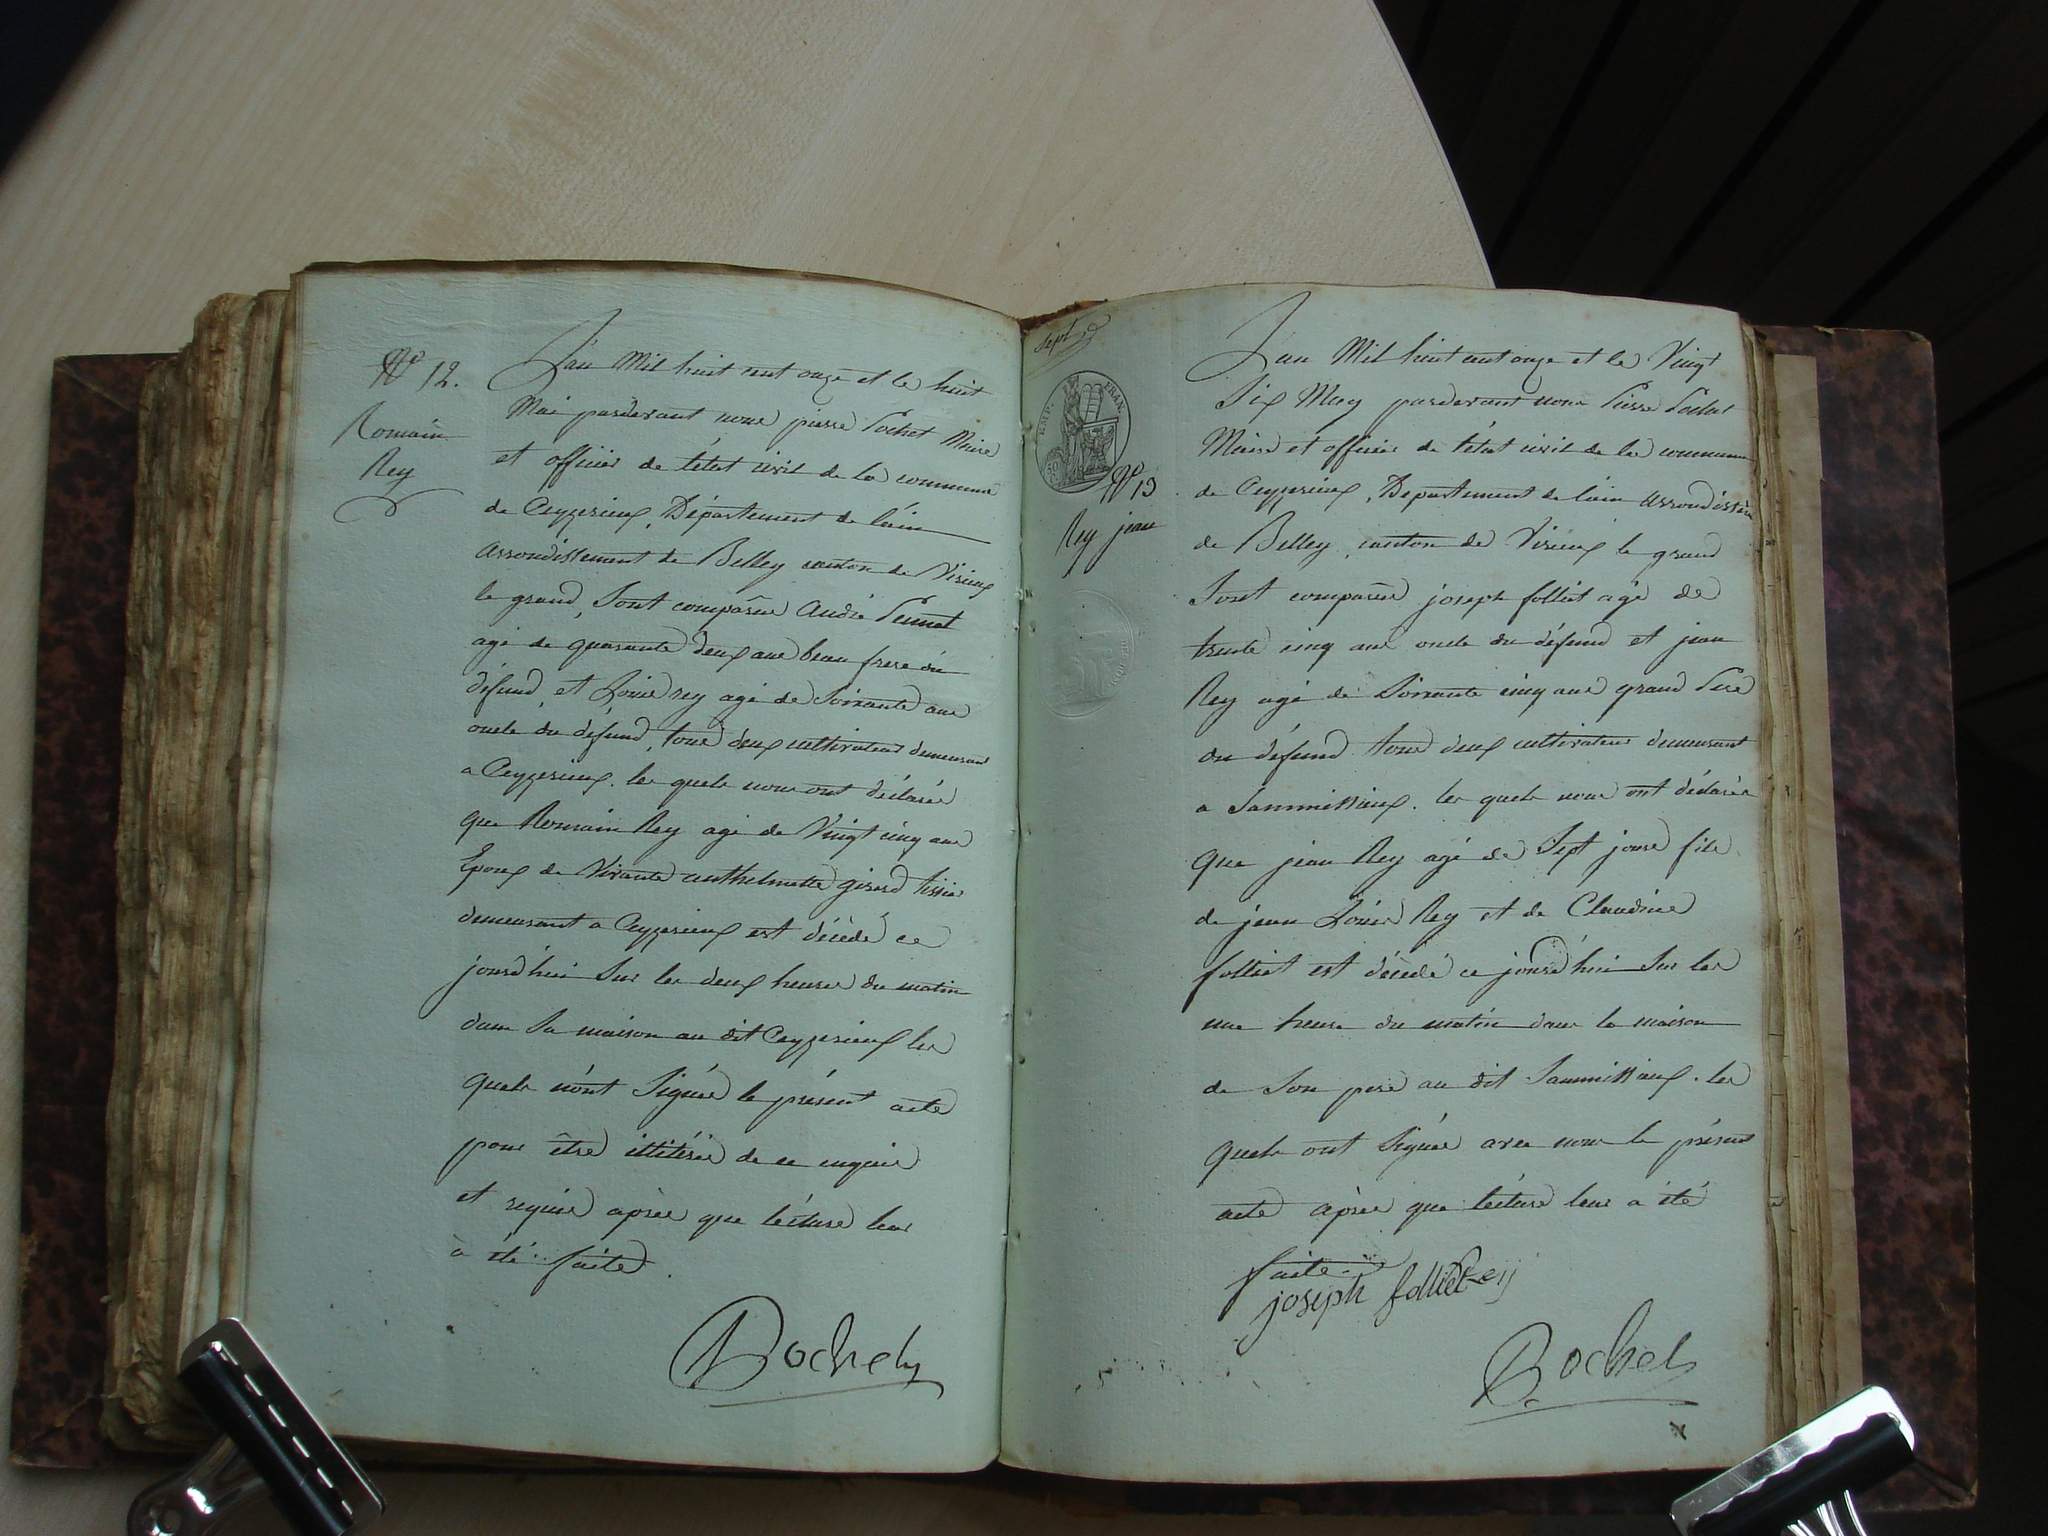 N° 12.
Romain
Rey
L'an Mil huit cent onze et le huit
Mai pardevant nous pierre Pochet Maire
et officier de l'état civil de la commune
de Ceyzerieux, Département de l'ain
arrondissement de Belley canton de Virieux
le grand, Sont comparus André Pernet
agé de quarante deux ans beau frere du
défund, et Louis rey agé de Soixante ans
oncle du défund, tous deux cultivateurs demeurant
a Ceyzerieux. les quels nous ont déclarés
que Romain Rey agé de Vingt cinq ans
Epoux de Vivante anthelmette girerd tissier
demeurant a Ceyzerieux est décèdé ce
jourd'hui Sur les deux heures du matin
dans Sa maison au dit Ceyzerieux les
quels n'ont Signés le présent acte
pour être illitérés de ce enquis
et requis après que lécture leur
à été faite.
Pochet
sept
EMP. FRAN.
50
N° 13
Rey jean
L'an Mil huit cent onze et le Vingt
Six May pardevant nous Pierre Pochet
Maire et officier de l'état civil de la commune
de Ceyzerieux, Département de l'ain arrondissem
de Belley, canton de Virieux le grand
Sont comparus joseph folliet agé de
trente cinq ans oncle du défund et jean
Rey agé de Soixante cinq ans grand Pere
du défund tous deux cultivateurs demeurant
a Sammissieux. les quels nous ont déclarés
que jean Rey agé de Sept jours fils
de jean Louis Rey et de Claudine
folliet est décedé ce jourd'hui Sur les
une heure du matin dans la maison
de Son pere au dit Sammissieux. les
quels ont Signés avec nous le présent
acte après que lécture leur a été
faite.
joseph folliet Rey
Pochet